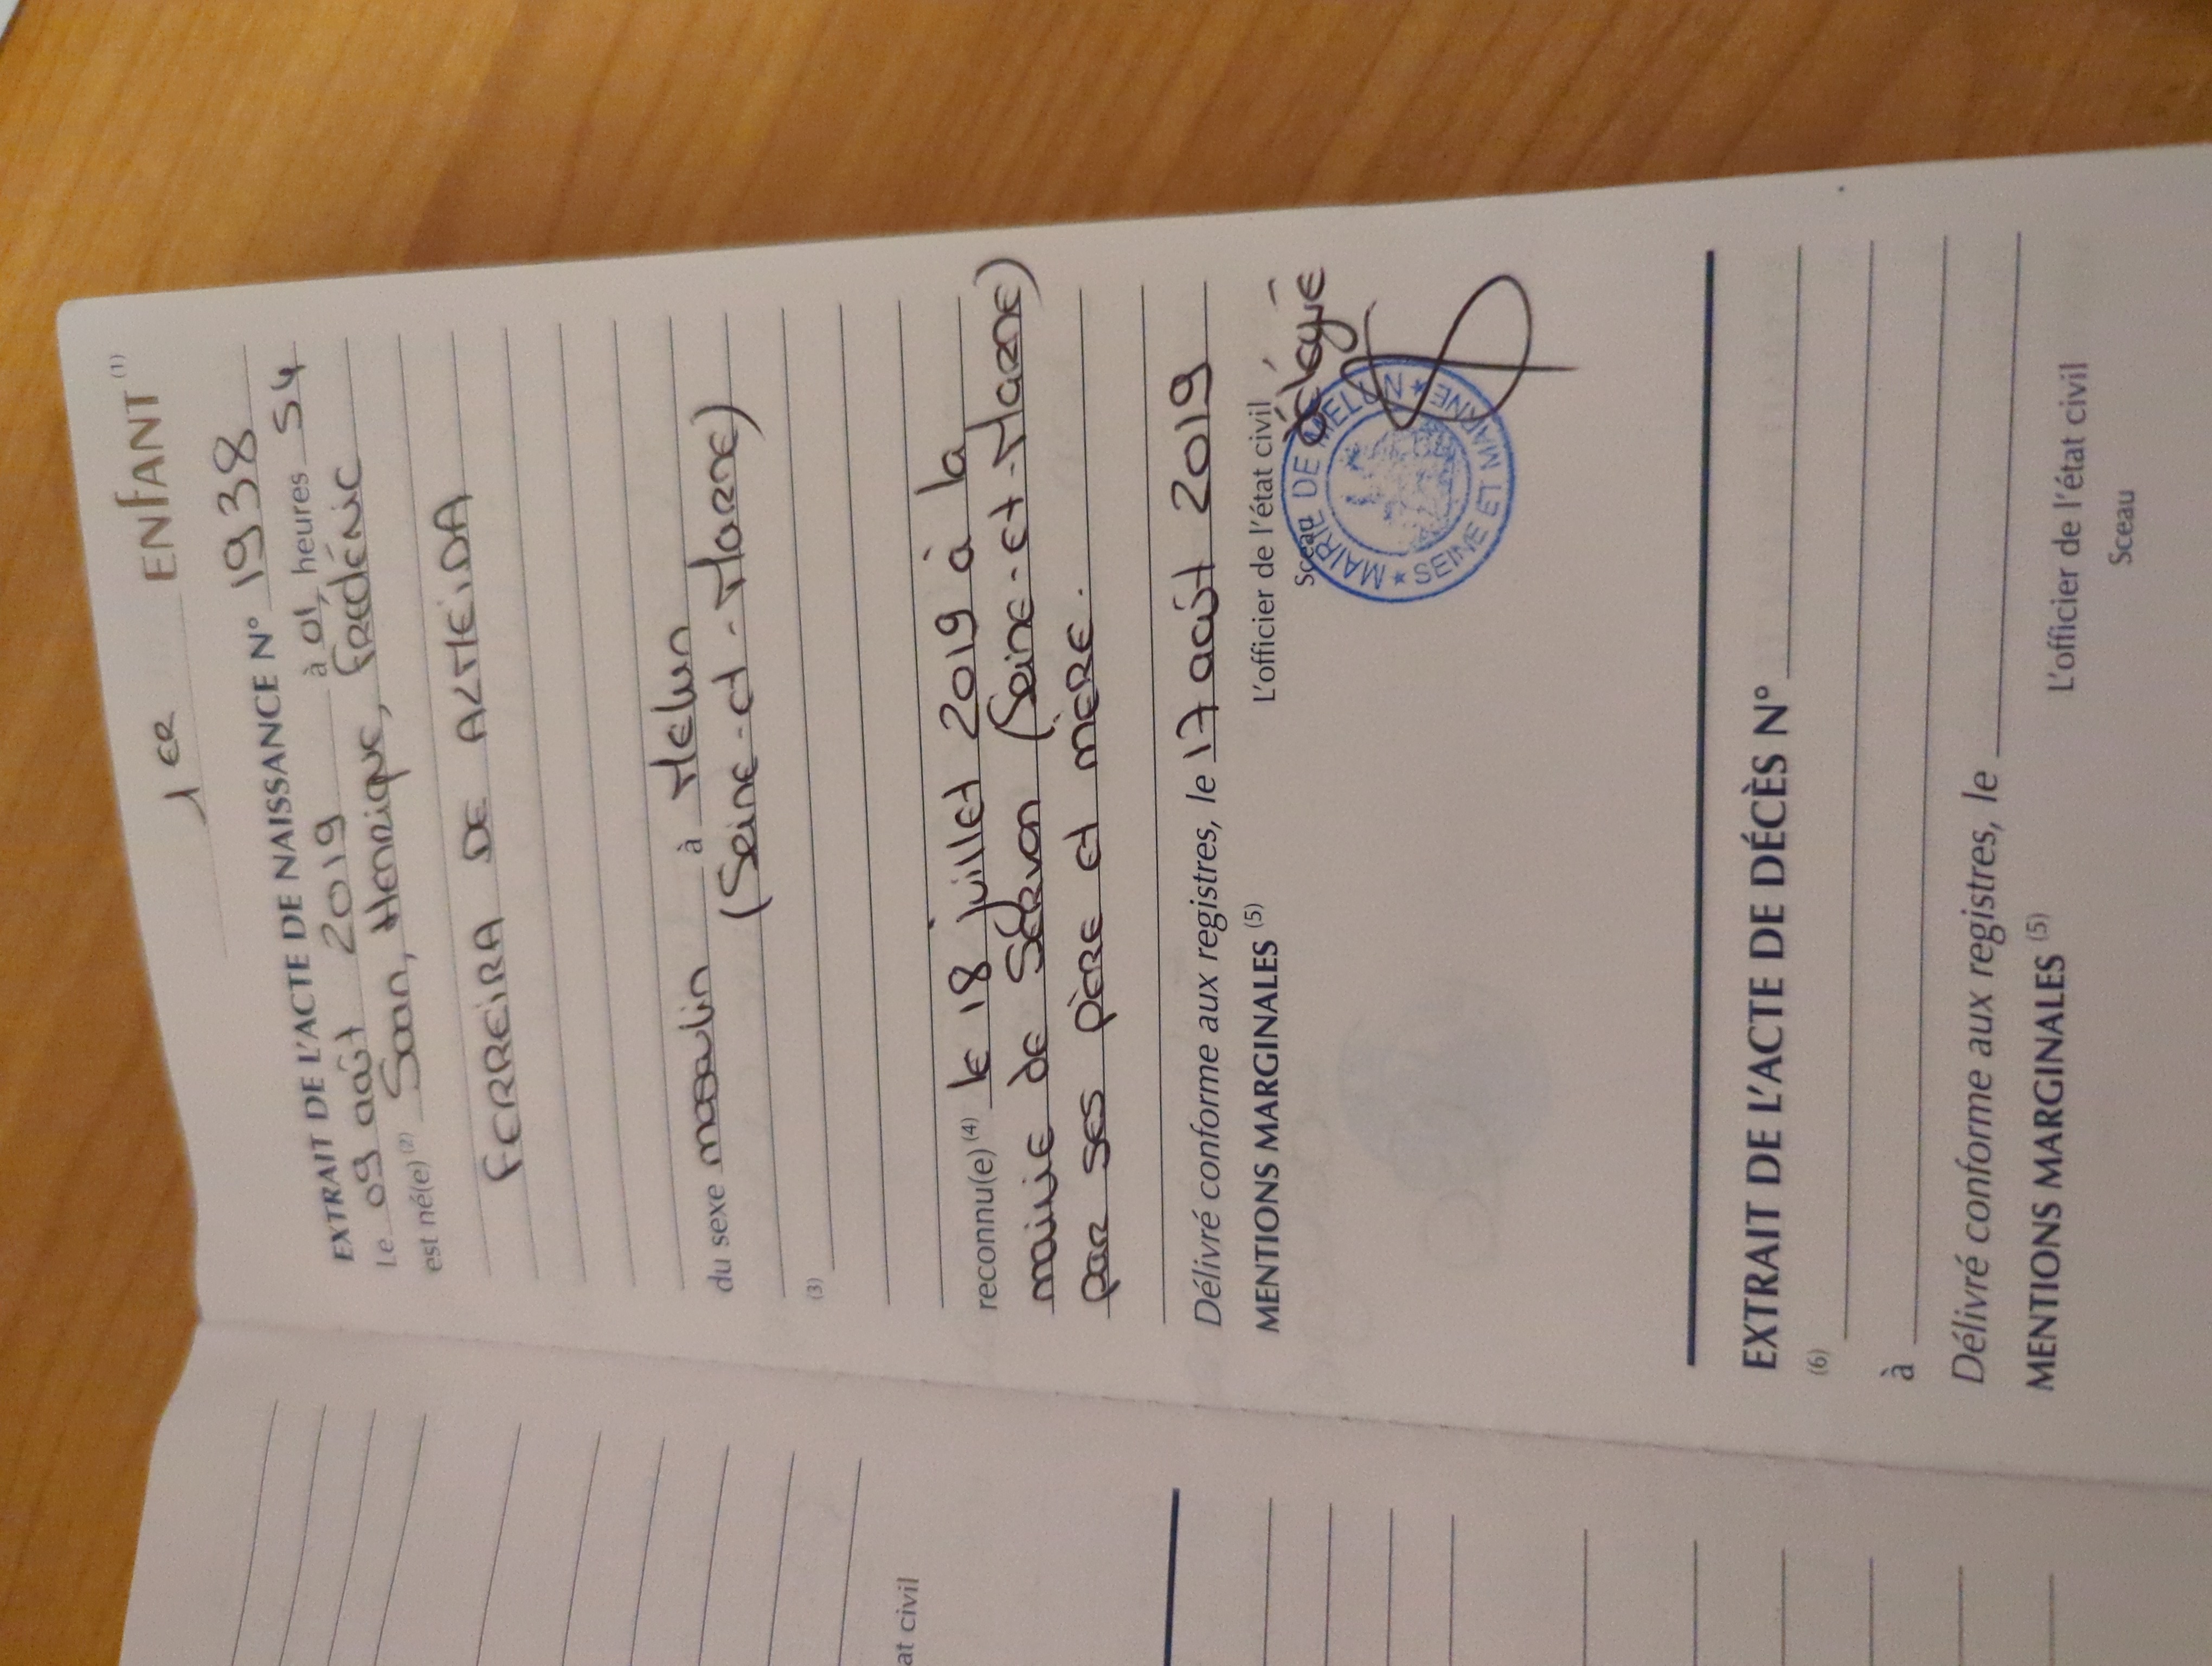 1ER ENFANT (1)
EXTRAIT DE L'ACTE DE NAISSANCE N° 1938
Le 09 août 2019 à 01 heures 54
est né(e) (2) Soan, Henrique, Frédéric
FERREIRA DE ALMEIDA
du sexe masculin à Melun
(Seine-et-Marne)
(3)
reconnu(e) (4) le 18 juillet 2019 à la
mairie de Servon (Seine-et-Marne)
par ses père et mère.
Délivré conforme aux registres, le 17 août 2019
MENTIONS MARGINALES (5) L'officier de l'état civil,
délégué
Sceau
MAIRIE DE MELUN
★ SEINE ET MARNE ★
EXTRAIT DE L'ACTE DE DÉCÈS N°
(6)
à
Délivré conforme aux registres, le
MENTIONS MARGINALES (5) L'officier de l'état civil
Sceau
at civil